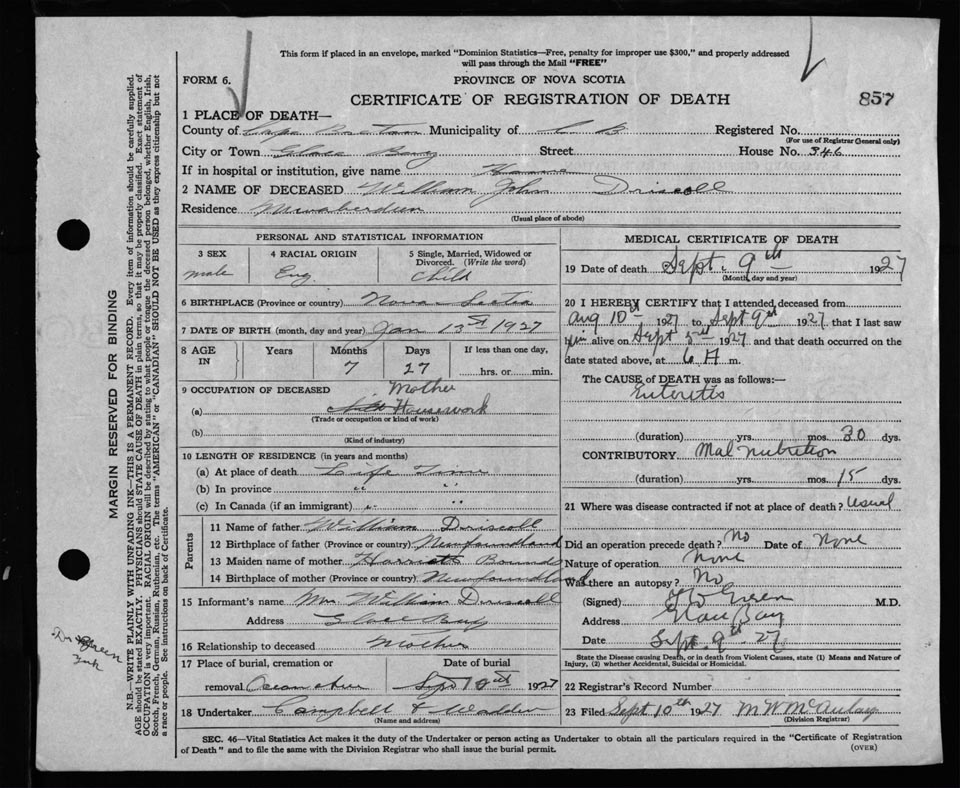 This form if placed in an envelope, marked "Dominion Statistics—Free, penalty for improper use $300," and properly addressed
will pass through the Mail "FREE"
FORM 6.
PROVINCE OF NOVA SCOTIA
CERTIFICATE OF REGISTRATION OF DEATH
857
1 PLACE OF DEATH—
County of Cape Breton Municipality of C B Registered No.
(For use of Registrar General only)
City or Town Glace Bay Street House No. 346
If in hospital or institution, give name Home
2 NAME OF DECEASED William John Driscoll
Residence Newaberdeen
(Usual place of abode)
PERSONAL AND STATISTICAL INFORMATION
3 SEX 4 RACIAL ORIGIN 5 Single, Married, Widowed or Divorced. (Write the word)
male Eng Child
6 BIRTHPLACE (Province or country) Nova Scotia
7 DATE OF BIRTH (month, day and year) Jan 13st 1927
8 AGE IN Years Months Days If less than one day,
7 27 hrs. or min.
9 OCCUPATION OF DECEASED Mother
(a) Housework
(Trade or occupation or kind of work)
(b)
(Kind of industry)
10 LENGTH OF RESIDENCE (in years and months)
(a) At place of death Life Time
(b) In province " "
(c) In Canada (if an immigrant) " "
Parents
11 Name of father William Driscoll
12 Birthplace of father (Province or country) Newfoundland
13 Maiden name of mother Harriett Bounds
14 Birthplace of mother (Province or country) Newfoundland
15 Informant's name Mrs William Driscoll
Address Glace Bay
16 Relationship to deceased Mother
17 Place of burial, cremation or Date of burial
removal Sept 10th 1927
18 Undertaker Campbell & Wadden
(Name and address)
MEDICAL CERTIFICATE OF DEATH
19 Date of death Sept. 9th 1927
(Month, day and year)
20 I HEREBY CERTIFY that I attended deceased from
Aug 10th 1927 to Sept 9th 1927 that I last saw
him alive on Sept 1927 and that death occurred on the
date stated above, at 6 A m.
The CAUSE of DEATH was as follows:—
Enteritis
(duration) yrs. mos. 30 dys.
CONTRIBUTORY Mal Nutrition
(duration) yrs. mos. 15 dys.
21 Where was disease contracted if not at place of death? Usual
Did an operation precede death? No Date of None
Nature of operation None
Was there an autopsy? No
(Signed) Green M.D.
Address Glace Bay
Date Sept. 9th 27
State the Disease causing Death, or in death from Violent Causes, state (1) Means and Nature of
Injury, (2) whether Accidental, Suicidal or Homicidal.
22 Registrar's Record Number
23 Filed Sept 10th 1927 M W McAulay
(Division Registrar)
SEC. 46—Vital Statistics Act makes it the duty of the Undertaker or person acting as Undertaker to obtain all the particulars required in the "Certificate of Registration
of Death" and to file the same with the Division Registrar who shall issue the burial permit.
(OVER)
MARGIN RESERVED FOR BINDING
N.B.—WRITE PLAINLY WITH UNFADING INK—THIS IS A PERMANENT RECORD. Every item of information should be carefully supplied.
AGE should be stated EXACTLY. PHYSICIANS should STATE CAUSE OF DEATH in plain terms, so that it may be properly classified. Exact statement of
OCCUPATION is very important. RACIAL ORIGIN will be described by stating to what people or tongue the deceased person belonged, whether English, Irish,
Scotch, French, German, Russian, Ruthenian, etc. The terms "AMERICAN" or "CANADIAN" SHOULD NOT BE USED as they express citizenship but not
a race or people. See instructions on back of Certificate.
Dr Green